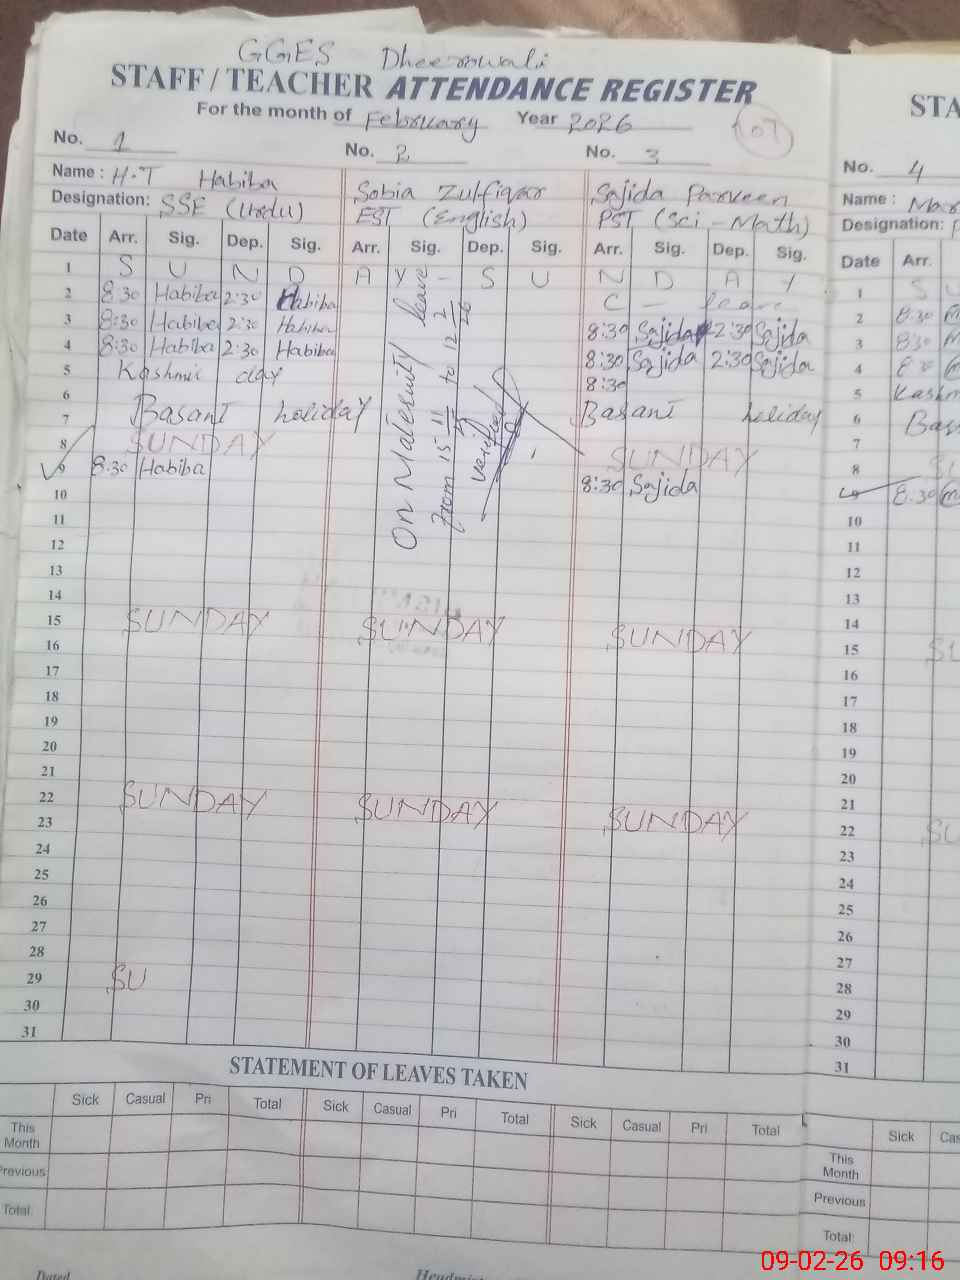 GGES Dheerowali
STAFF / TEACHER ATTENDANCE REGISTER
For the month of February Year 2026
No. 1 No. 2 No. 3
Name : H.T Habiba Sobia Zulfiqar Sajida Parveen
Designation: SSE (Urdu) EST (English) PST (Sci - Math)
Date Arr. Sig. Dep. Sig. Arr. Sig. Dep. Sig. Arr. Sig. Dep. Sig.
1 S U N D A Y - S U N D A Y
2 8:30 Habiba 2:30 Habiba C - leave
3 8:30 Habiba 2:30 Habiba 8:30 Sajida 2:30 Sajida
4 8:30 Habiba 2:30 Habiba 8:30 Sajida 2:30 Sajida
5 Kashmir day 8:30
6
7 Basant holiday Basant holiday
8 SUNDAY SUNDAY
9 8:30 Habiba 8:30 Sajida
On Maternity leave
from 15-11 to 12 2/26
verified
10
11
12
13
14
15 SUNDAY SUNDAY SUNDAY
16
17
18
19
20
21
22 SUNDAY SUNDAY SUNDAY
23
24
25
26
27
28
29 SU
30
31
STATEMENT OF LEAVES TAKEN
Sick Casual Pri Total Sick Casual Pri Total Sick Casual Pri Total
This Month
Previous
Total
Dated
STA
No. 4
Name : Mar
Designation:
Date Arr.
1 S U
2 8:30
3 8:30
4 8:30
5 Kashm
6 Bas
7
8 SU
9 8:30
10
11
12
13
14
15 SU
16
17
18
19
20
21
22 SU
23
24
25
26
27
28
29
30
31
Sick Cas
This Month
Previous
Total
09-02-26 09:16